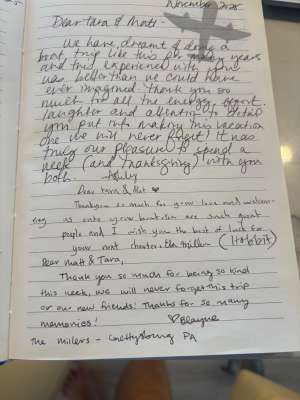 November 2025
Dear Tara & Matt -
We have dreamt of doing a
boat trip like this for many years
and this experience with you
was better than we could have
ever imagined. Thank you so
much for all the energy, effort,
laughter and attention to detail
you put into making this vacation
one we will never forget! It was
truly our pleasure to spend a
week (and Thanksgiving) with you
both.
Dear Tara & Mat ♥
Thankyou so much for your love and welcom-
ing us onto your boat. You are such great
people and I wish you the best of luck for
your next chapter.
Dear Matt & Tara,
Thank you so much for being so kind
this week, we will never forget this trip
or our new friends! Thanks for so many
memories!
♡ Blayne
The Millers - Gettysburg PA